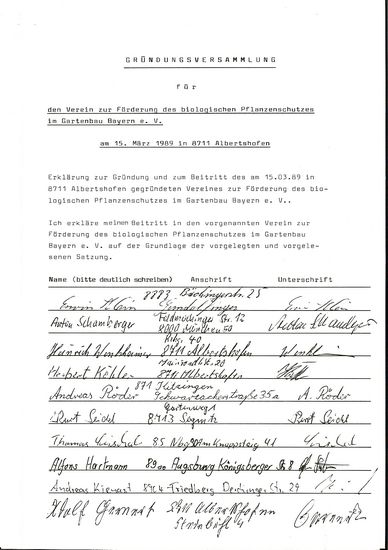 GRÜNDUNGSVERSAMMLUNG
für
den Verein zur Förderung des biologischen Pflanzenschutzes
im Gartenbau Bayern e. V.
am 15. März 1989 in 8711 Albertshofen
Erklärung zur Gründung und zum Beitritt des am 15.03.89 in
8711 Albertshofen gegründeten Vereines zur Förderung des bio-
logischen Pflanzenschutzes im Gartenbau Bayern e. V..
Ich erkläre meinen Beitritt in den vorgenannten Verein zur
Förderung des biologischen Pflanzenschutzes im Gartenbau
Bayern e. V. auf der Grundlage der vorgelegten und vorgele-
senen Satzung.
Name (bitte deutlich schreiben) Anschrift Unterschrift
8883
Erwin Klein Gundelfingen Erwin Klein
12
Anton Schamberger 8000 München 50
40
Heinrich 8711 Albertshofen
20
Herbert Köhler 8711 Albertshofen
871 Kitzingen
Andreas Röder Schwarzacherstraße 35a A. Röder
Gartenweg 1
Kurt Seidel 8713 Segnitz Kurt Seidel
Thomas 85 Nbg 90 41
Alfons Hartmann 8900 Augsburg Königsberger Str. 8
Andreas 8904 Friedberg Str. 29
Adolf 8711 Albertshofen